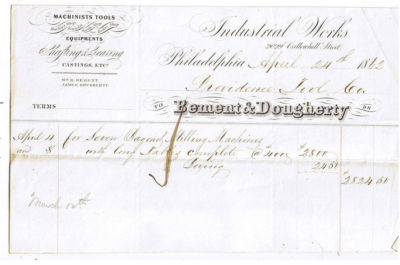 MACHINISTS TOOLS
EQUIPMENTS
Shafting & Gearing
CASTINGS, ETC.
WM. B. BEMENT.
JAMES DOUGHERTY.
TERMS
Industrial Works
Callowhill Street,
Philadelphia April 24th 1862
Providence Tool Co.
TO Bement & Dougherty DR
April 4 for Seven Milling Machines
and 8 with complete @ $400 $2800
2450
$2824 50
March 12th